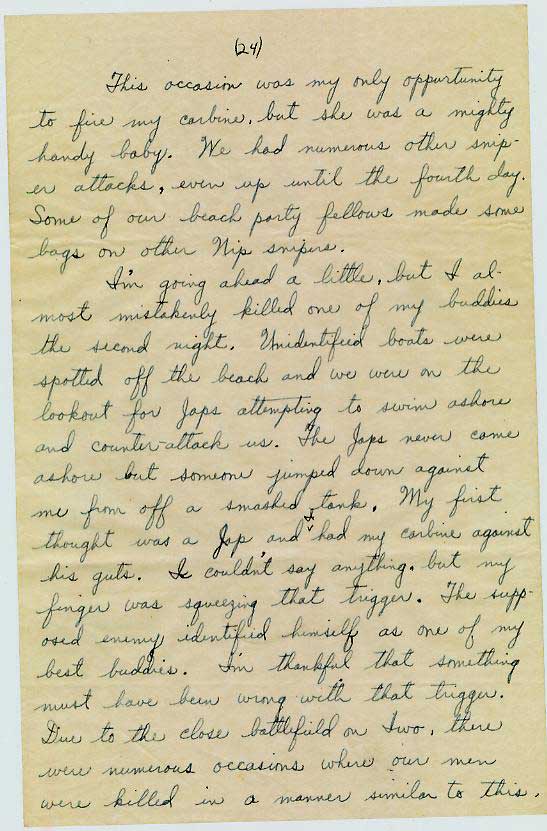 (24)
This occasion was my only oppurtunity
to fire my carbine, but she was a mighty
handy baby. We had numerous other snip-
er attacks, even up until the fourth day.
Some of our beach party fellows made some
bags on other Nip snipers.
I'm going ahead a little, but I al-
most mistakenly killed one of my buddies
the second night. Unidentifeid boats were
spotted off the beach and we were on the
lookout for Japs attempting to swim ashore
and counter-attack us. The Japs never came
ashore but someone jumped down against
me from off a smashed tank. My first
thought was a Jap and I had my carbine against
his guts. I couldn't say anything, but my
finger was squeezing that trigger. The supp-
osed enemy identified himself as one of my
best buddies. I'm thankful that something
must have been wrong with that trigger.
Due to the close battlefield on Iwo, there
were numerous occasions where our men
were killed in a manner similar to this.